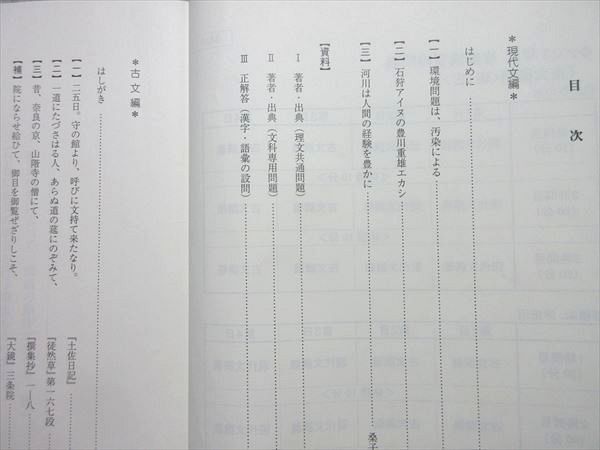 目次
＊現代文編＊
はじめに
【一】環境問題は、汚染による
【二】石狩アイヌの豊川重雄エカシ
【三】河川は人間の経験を豊かに
桑子
【資料】
Ⅰ 著者・出典（理文共通問題）
Ⅱ 著者・出典（文科専用問題）
Ⅲ 正解答（漢字・語彙の設問）
＊古文編＊
はしがき
【一】二五日。守の館より、呼びに文持て来たなり。『土佐日記』
【二】一道にたづさはる人、あらぬ道の莚にのぞみて、『徒然草』第一六七段
【三】昔、奈良の京、山階寺の僧にて、『撰集抄』一―八
【補】院にならせ給ひて、御目を御覧ぜざりしこそ、『大鏡』三条院